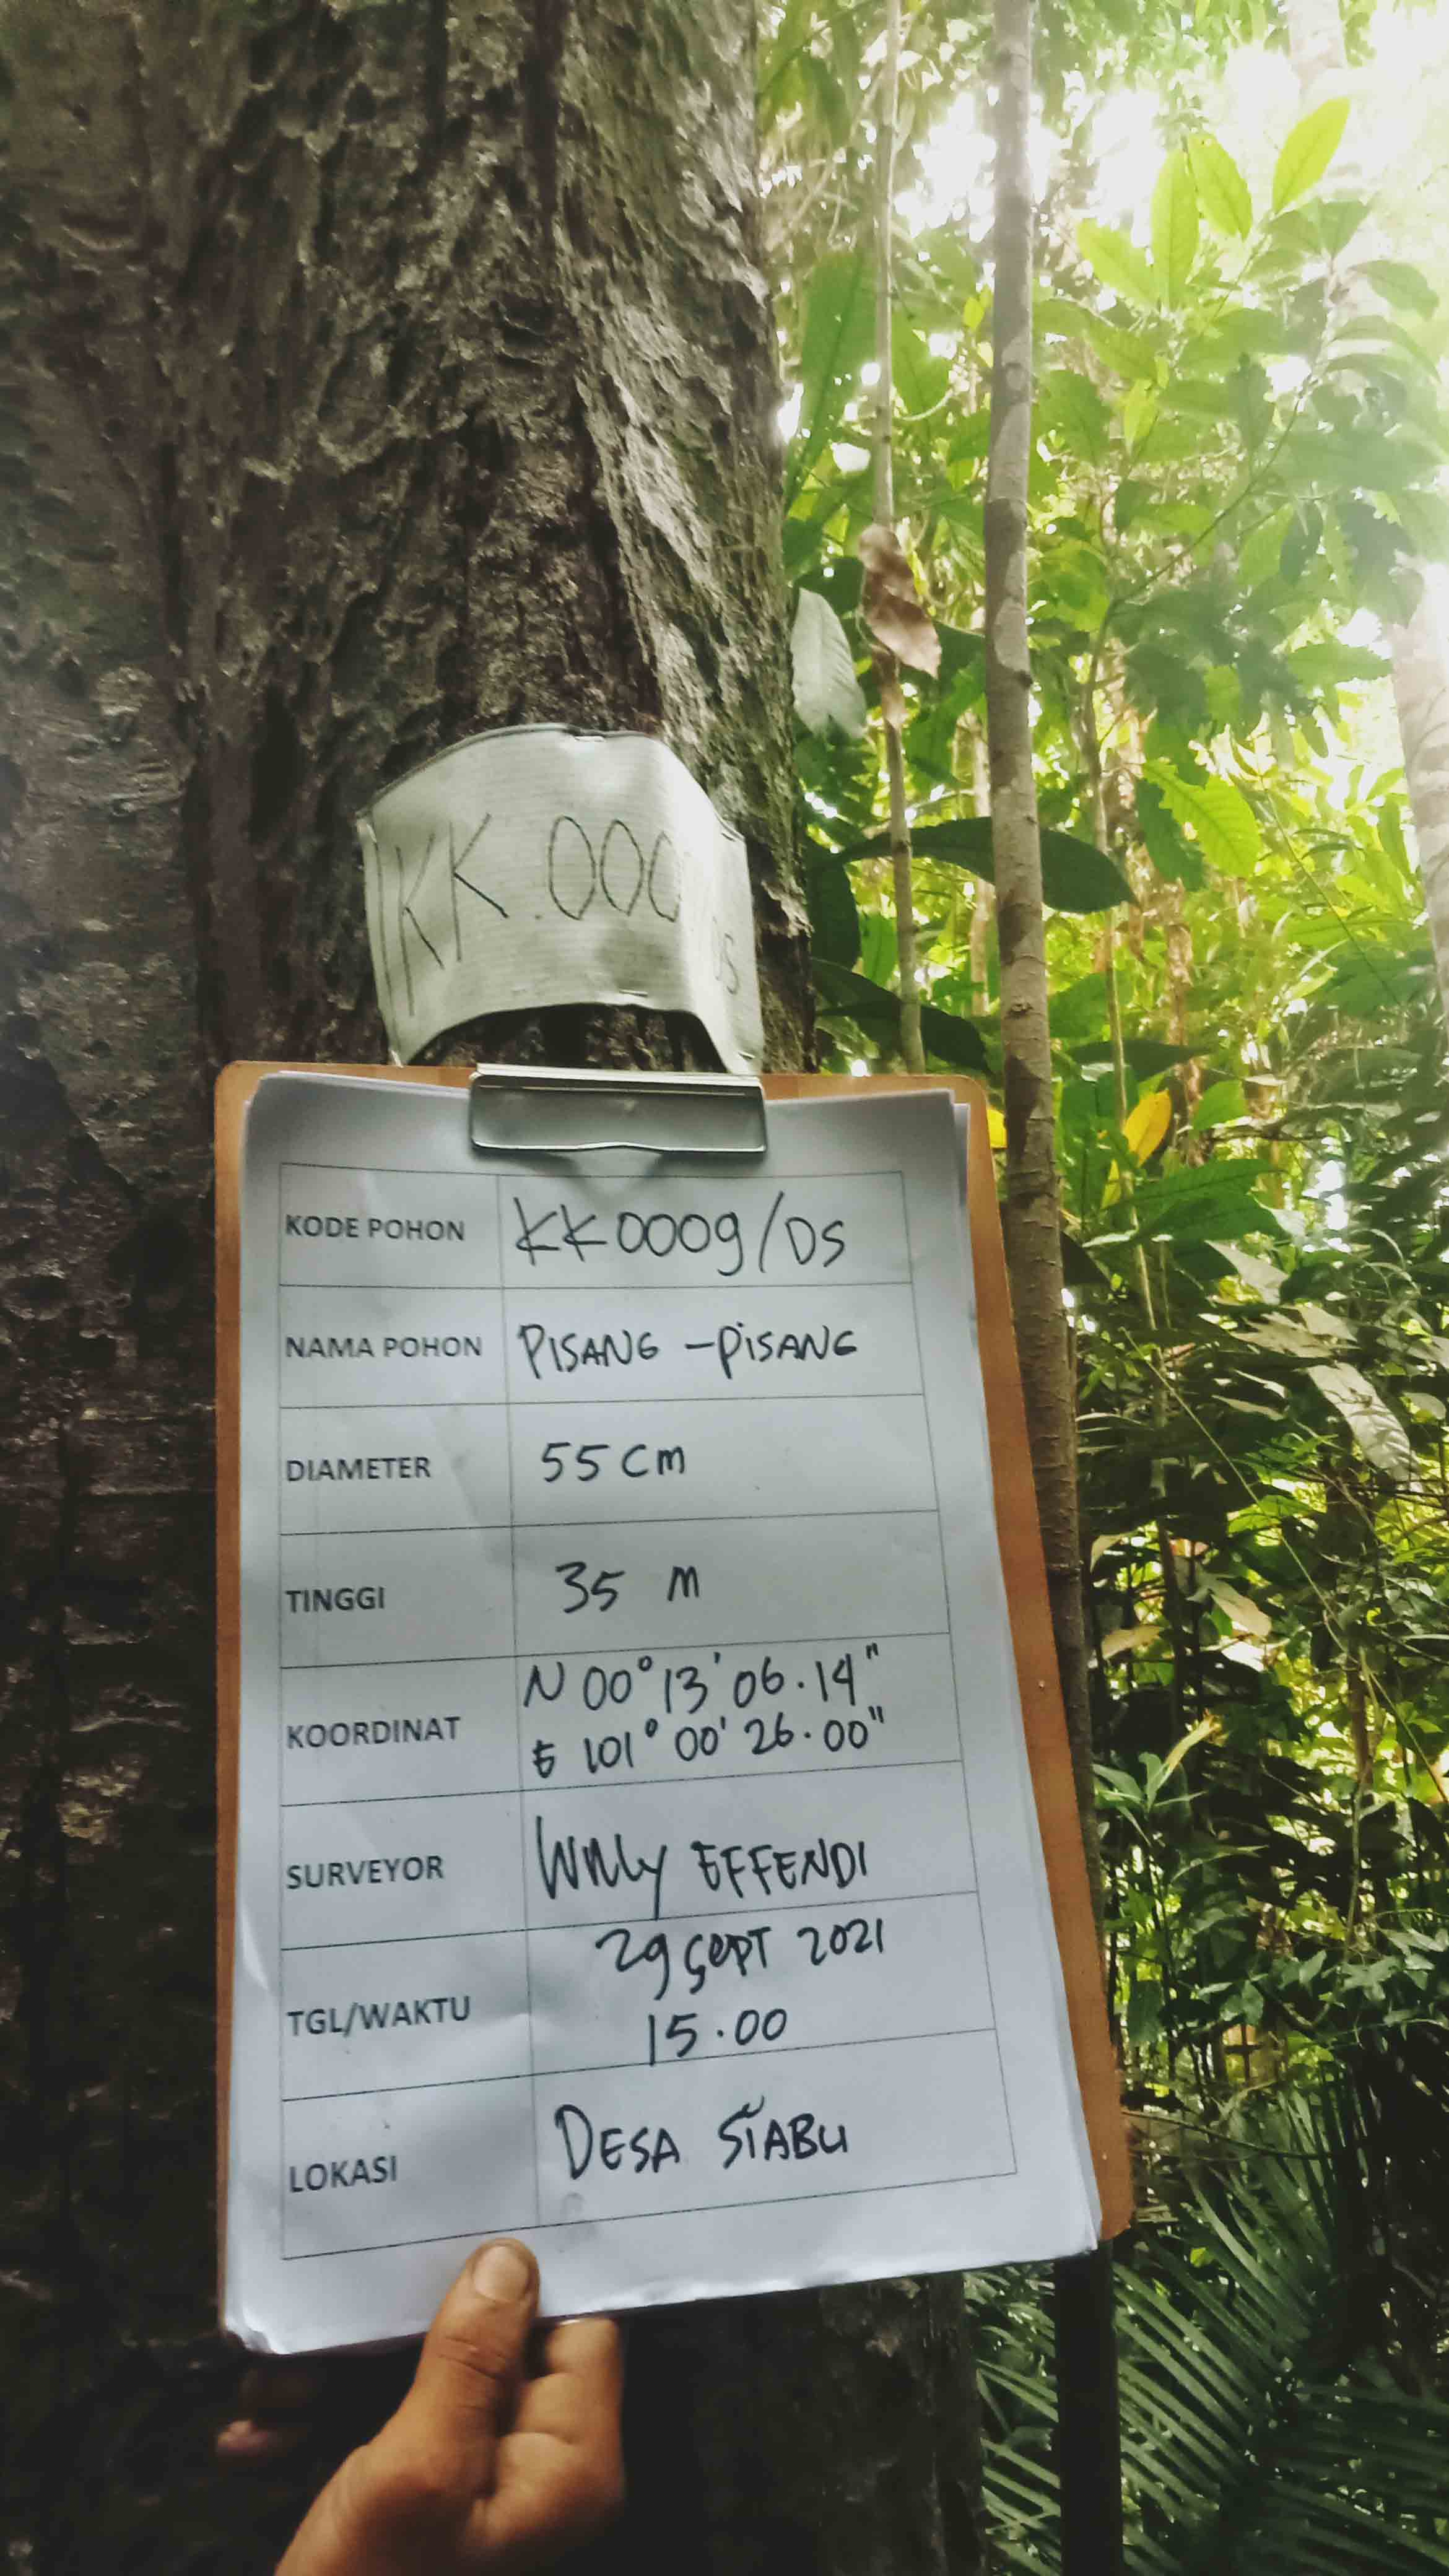 KK.000
DS
KODE POHON KK0009/DS
NAMA POHON PISANG - PISANG
DIAMETER 55 cm
TINGGI 35 m
KOORDINAT N 00° 13' 06.14"
E 101° 00' 26.00"
SURVEYOR Willy EFFENDI
TGL/WAKTU 29 SEPT 2021
15.00
LOKASI DESA SIABU